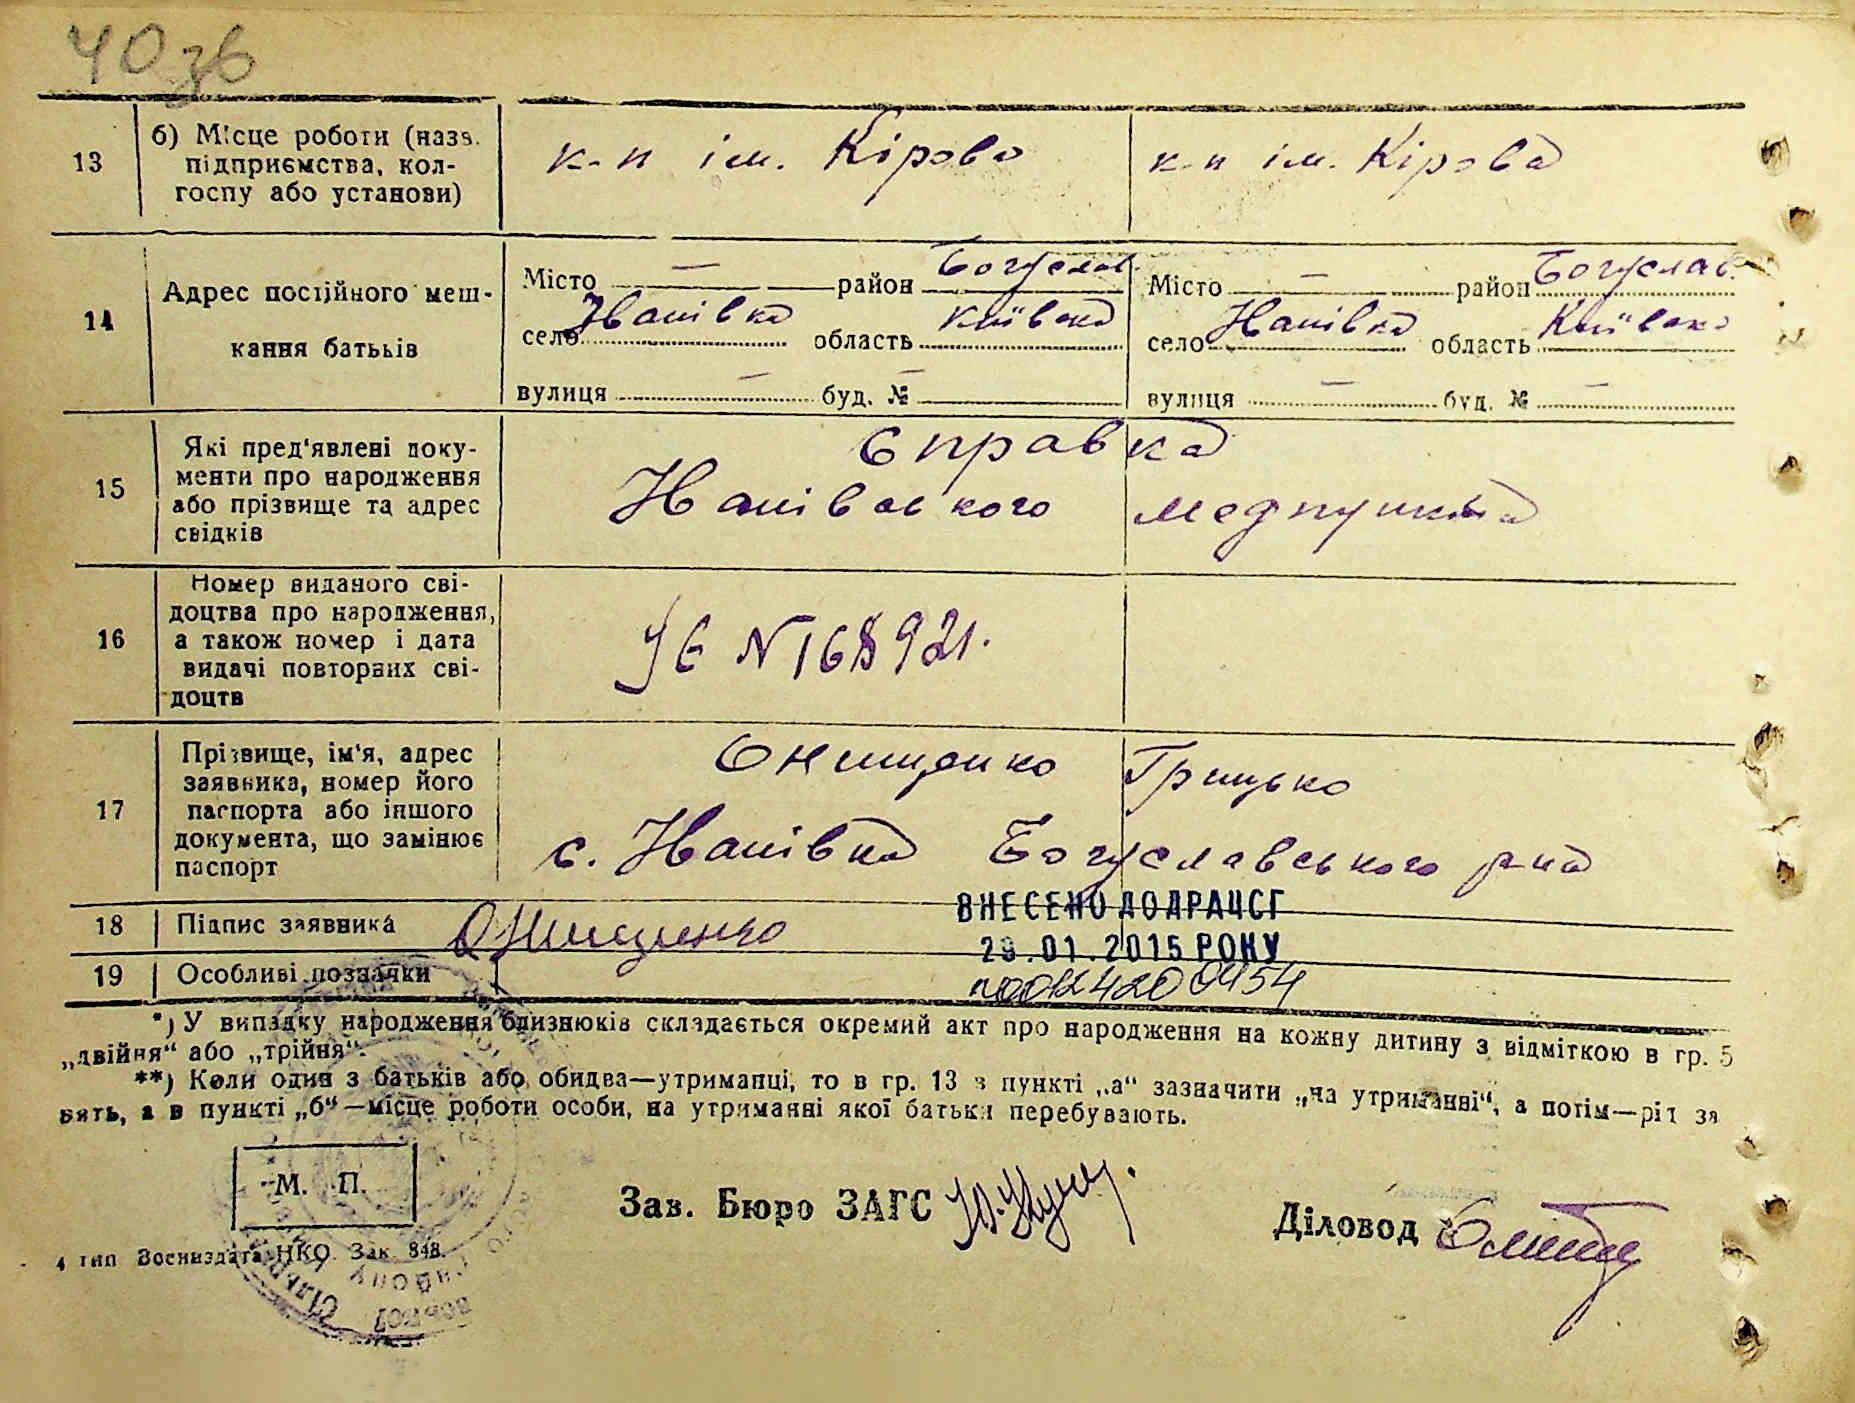 40 зв
13
б) Місце роботи (назв. підприємства, кол-госпу або установи)
к-п ім. Кірова
к-п ім. Кірова
14
Адрес постійного меш-кання батьків
Місто — район Богуслав.
село Нашівка область Київська
вулиця — буд. №
Місто — район Богуслав.
село Нашівка область Київська
вулиця — буд. № —
15
Які пред'явлені доку-
менти про народження
або прізвище та адрес
свідків
Справка
Нашівського медпункта
16
Номер виданого сві-
доцтва про народження,
а також номер і дата
видачі повторних сві-
доцтв
УБ N 168921.
17
Прізвище, ім'я, адрес
заявника, номер його
паспорта або іншого
документа, що замінює
паспорт
Онищенко Грицько
с. Нашівка Богуславського р-на
18
Підпис заявника
Онищенко
ВНЕСЕНО ДО ДРАЦСГ
29.01.2015 РОКУ
19
Особливі позначки
№00124200454
*) У випадку народження близнюків складається окремий акт про народження на кожну дитину з відміткою в гр. 5
„двійня“ або „трійня“.
**) Коли один з батьків або обидва—утриманці, то в гр. 13 в пункті „а“ зазначити „на утриманні“, а потім—рід за
нять, а в пункті „б“—місце роботи особи, на утриманні якої батьки перебувають.
М. П.
Зав. Бюро ЗАГС
Діловод
4 тип Воениздата НКО. Зак. 848.